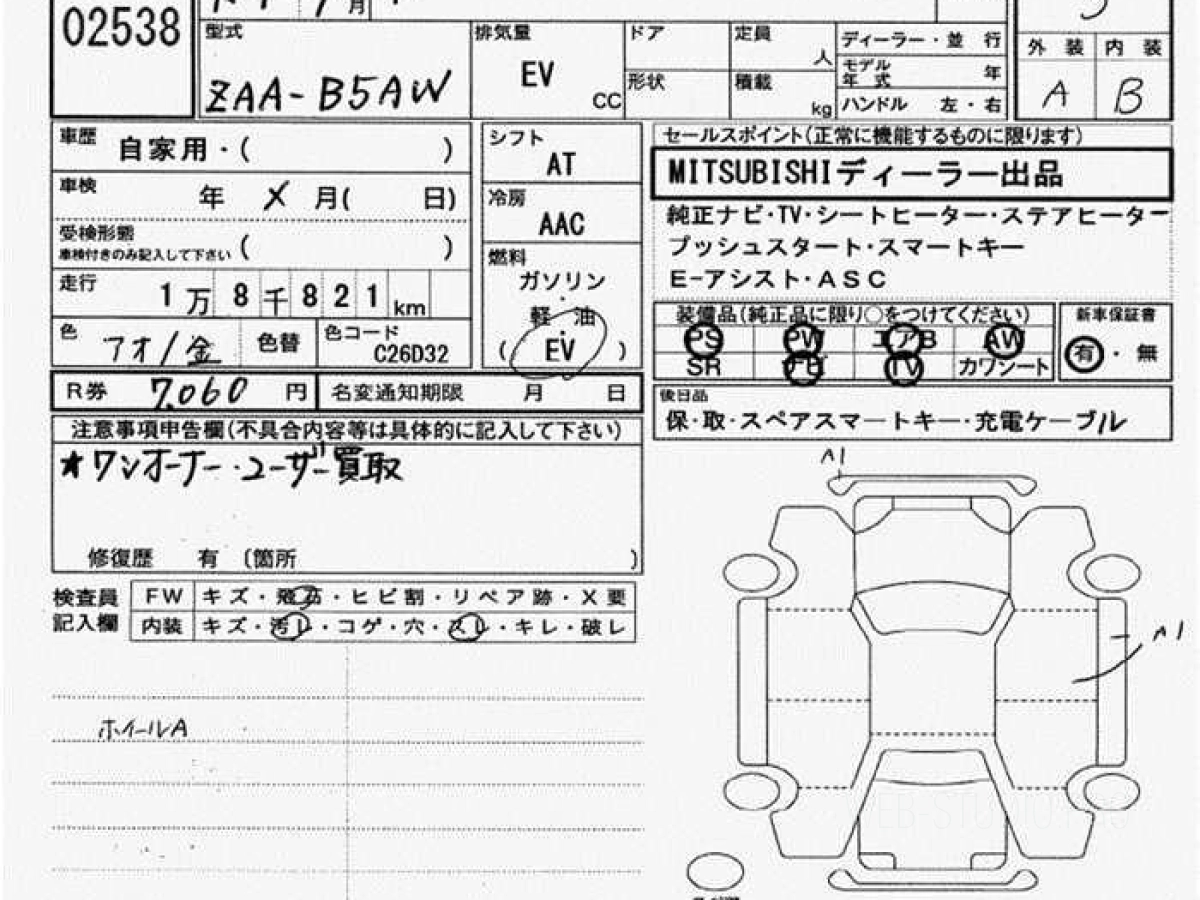 02538
月
型式
ZAA-B5AW
排気量
EV
CC
ドア
形状
定員
人
積載
kg
ディーラー・並 行
モデル
年 式 年
ハンドル 左・右
外 装 内 装
A B
車歴
自家用・( )
車検
年 X 月( 日)
受検形態
車検付きのみ記入して下さい ( )
走行
1万8千821km
色
アオ/金
色替
色コード
C26D32
シフト
AT
冷房
AAC
燃料
ガソリン
・
軽 油
・
( EV )
R券 7,060 円
名変通知期限 月 日
セールスポイント(正常に機能するものに限ります)
MITSUBISHIディーラー出品
純正ナビ・TV・シートヒーター・ステアヒーター
プッシュスタート・スマートキー
E-アシスト・ASC
装備品(純正品に限り○をつけてください)
PS PW エアB AW
SR ナビ TV カワシート
新車保証書
有・無
後日品
保・取・スペアスマートキー・充電ケーブル
注意事項申告欄(不具合内容等は具体的に記入して下さい)
★ワンオーナー・ユーザー買取
修復歴 有 〔箇所 〕
検査員
記入欄
FW キズ・飛石・ヒビ割・リペア跡・X要
内装 キズ・汚レ・コゲ・穴・スレ・キレ・破レ
ホイールA
A1
A1